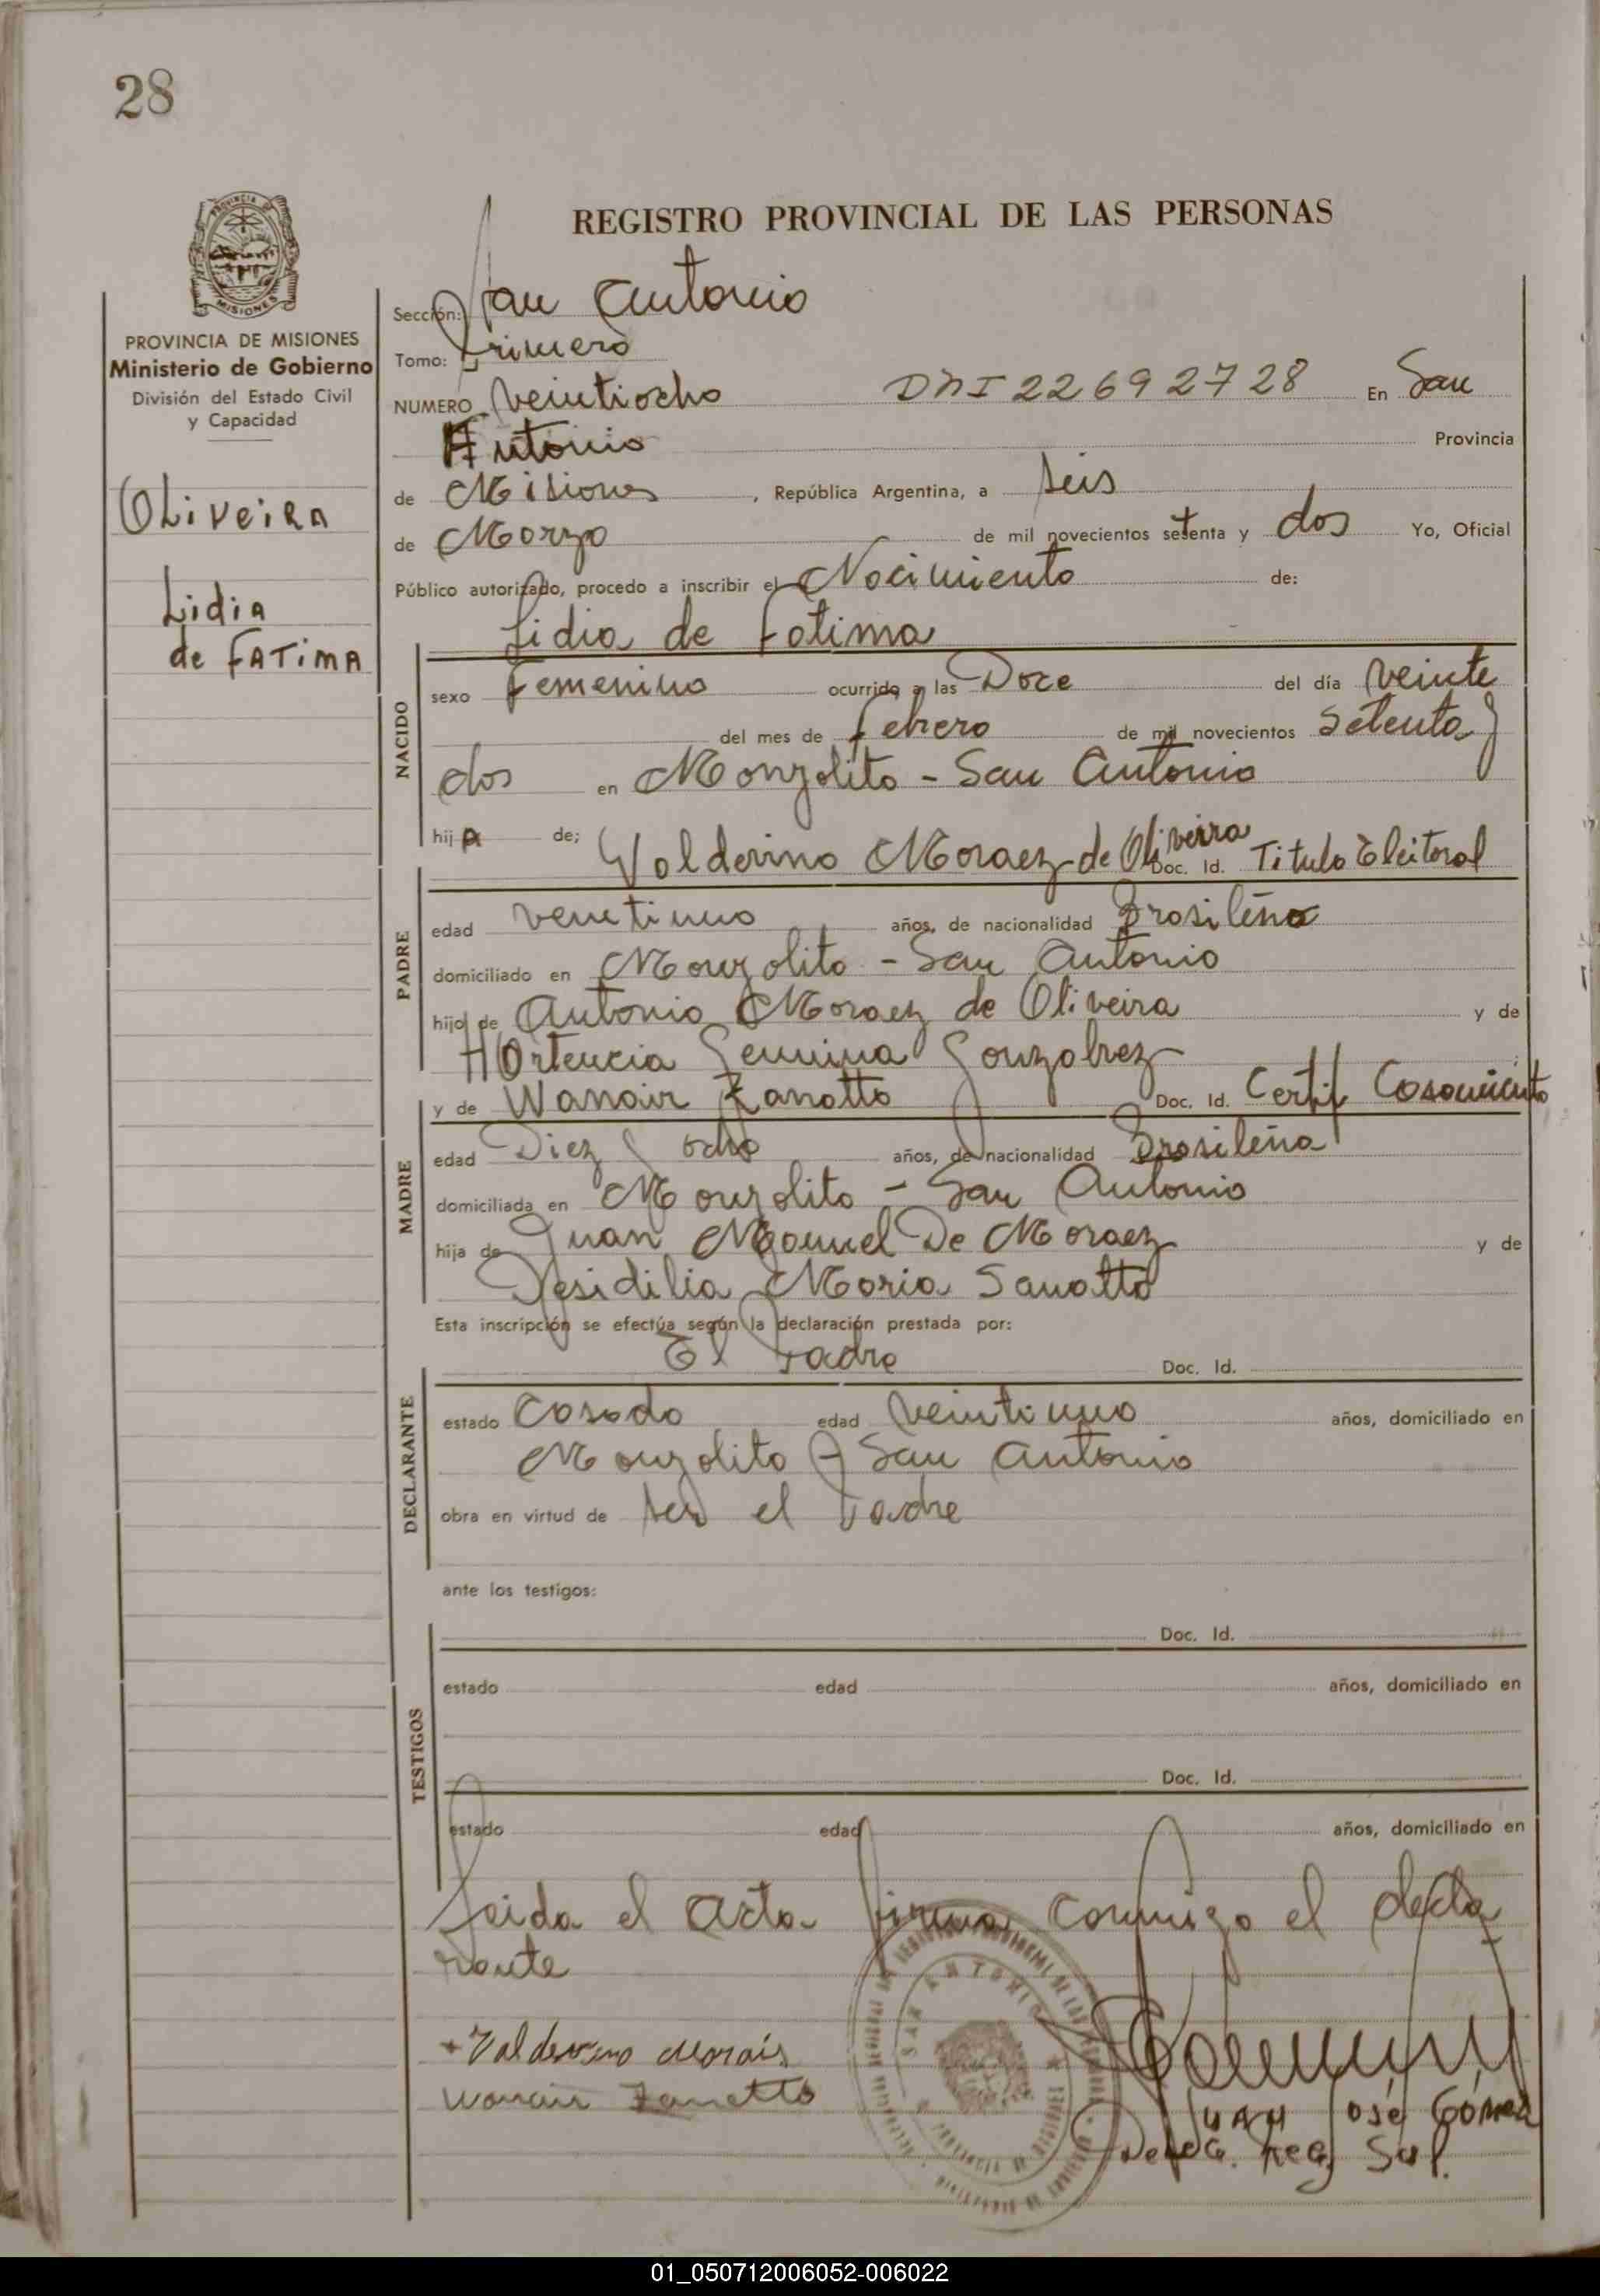 28
REGISTRO PROVINCIAL DE LAS PERSONAS
PROVINCIA DE MISIONES
Ministerio de Gobierno
División del Estado Civil
y Capacidad
OLiVeiRA
Lidia
de FATiMA
Sección: San Antonio
Tomo: Primero
NUMERO Veintiocho DNI 22692728 En San
Antonio Provincia
de Misiones, República Argentina, a seis
de Marzo de mil novecientos setenta y dos Yo, Oficial
Público autorizado, procedo a inscribir el Nacimiento de:
Lidia de Fatima
NACIDO
sexo Femenino ocurrido a las Doce del día veinte
del mes de febrero de mil novecientos setenta y
dos en Monzolito - San Antonio
hijA de; Valderino Moraez de Oliveira Doc. Id. Titulo Eleitoral
PADRE
edad veintiuno años, de nacionalidad Brasileño
domiciliado en Monzolito - San Antonio
hijo de Antonio Moraez de Oliveira y de
HOrtencia Gonzalvez
y de Wanair Zanatto Doc. Id. Certif Casamiento
MADRE
edad Diez y ocho años, de nacionalidad Brasileña
domiciliada en Monzolito - San Antonio
hija de Juan Manuel De Moraez y de
Desidilia Maria Sanatto
Esta inscripción se efectúa según la declaración prestada por:
El Padre Doc. Id.
DECLARANTE
estado Casado edad Veintiuno años, domiciliado en
Monzolito - San Antonio
obra en virtud de ser el Padre
ante los testigos:
Doc. Id.
TESTIGOS
estado edad años, domiciliado en
Doc. Id.
estado edad años, domiciliado en
Leida el acta firma conmigo el decla
rante
SAN ANTONIO
Valderino Morais
Wanair Zanetto
JUAN José Gómez
01_050712006052-006022